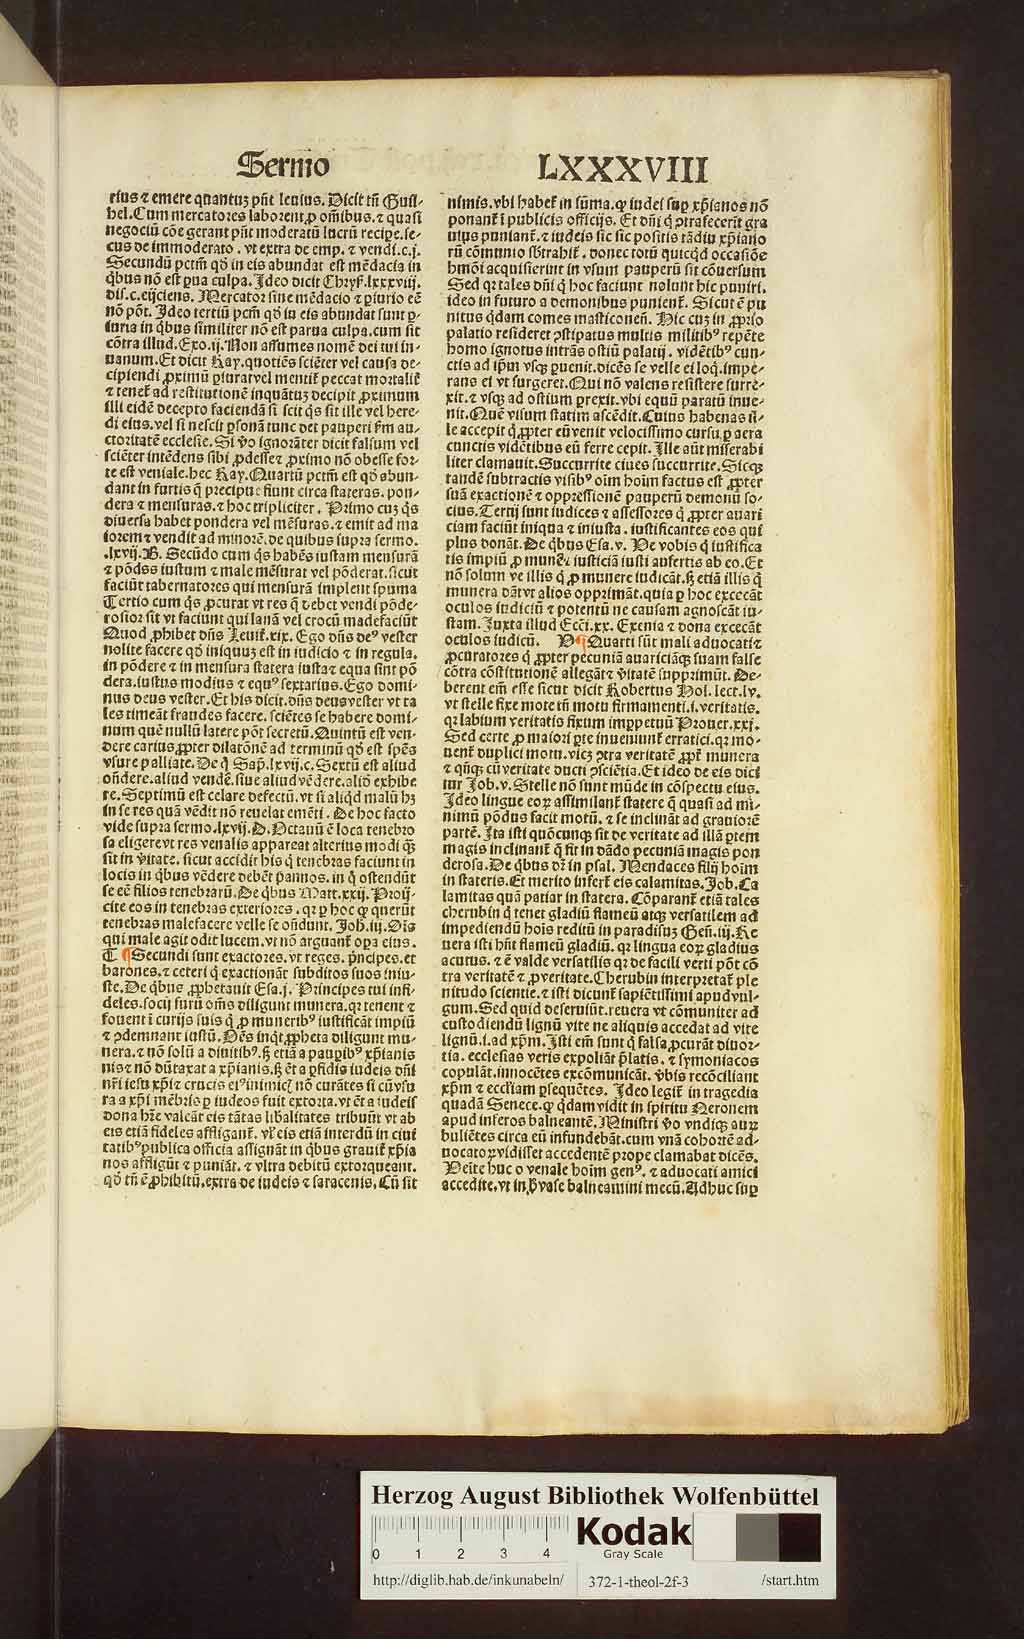 Sermo
LXXXVIII
rius ⁊ emere quantuꝫ pñt leuius. Dicit tñ Guil-
hel. Cum mercatores laborent ꝓ oībus. ⁊ quasi
negociū cōe gerant pñt moderatū lucrū recipe. se-
cus de immoderato. vt extra de emp. ⁊ vendi. c. j.
Secundū pctm̄ qd̄ in eis abundat est mēdacia in
q̇bus nō est ꝑua culpa. Ideo dicit Chryſ. lxxxviij.
dis. c. eijciens. Mercator sine mēdacio ⁊ ꝑiurio eē
nō pōt. Ideo tertiū pcm̄ qd̄ in eis abundat sunt ꝑ-
iuria in q̇bus similiter nō est parua culpa. cum sit
cōtra illud. Exo. ij. Non assumes nomē dei tui in
uanum. Et dicit Ray. quotiēs sciēter vel causa de-
cipiendi ꝓximū ꝑiurat vel mentit̄ peccat mortalit̄
⁊ tenet̄ ad restitutionē inquātuꝫ decipit ꝓximum
illi eidē decepto faciendā si scit q̇s sit ille vel here-
di eius. vel si nescit ꝑsonā tunc det pauperi ẜm au-
ctoritatē ecclesie. Si ṽo ignorāter dicit falsum vel
sciēter intēdens sibi ꝓdesse ⁊ ꝓximo nō obesse for-
te est veniale. hec Ray. Quartū pctm̄ est qd̄ abun-
dant in furtis q̄ precipue fiunt circa stateras. pon-
dera ⁊ mensuras. ⁊ hoc tripliciter. Primo cuꝫ q̇s
diuersa habet pondera vel mēsuras. ⁊ emit ad ma
iorem ⁊ vendit ad minorē. de quibus supra sermo.
.lxvij. B. Secūdo cum q̇s habēs iustam mensurā
⁊ pōdus iustum ⁊ male mēsurat vel pōderat. sicut
faciūt tabernatores qui mensurā implent spuma
Tertio cum q̇s ꝓcurat vt res q̄ debet vendi pōde-
rosior sit vt faciunt qui lanā vel crocū madefaciūt
Quod ꝓhibet dn̄s Leuit̄. xix. Ego dn̄s deꝰ vester
nolite facere qd̄ iniquuꝫ est in iudicio ⁊ in regula.
in pōdere ⁊ in mensura statera iusta ⁊ equa sint pō
dera. iustus modius ⁊ equꝰ sextarius. Ego domi-
nus deus vester. Et his dicit. dn̄s deus vester vt ta
les timeāt fraudes facere. sciētes se habere domi-
num quē nullū latere pōt secretū. Quintū est ven-
dere carius ꝓpter dilatōnē ad terminū qd̄ est spēs
vsure palliate. De q̇ Sap̄. lxvij. c. Sextū est aliud
ondere. aliud vendē. siue aliud vēdere. aliud exhibe
re. Septimū est celare defectū. vt si aliq̇d malū hꝫ
in se res quā vēdit nō reuelat emēti. De hoc facto
vide supra sermo. lxvij. D. Octauū ē loca tenebro
sa eligere vt res venalis appareat alterius modi q̄ꝫ
sit in ṽitate. sicut accidit his q̇ tenebras faciunt in
locis in q̇bus vēdere debēt pannos. in q̇ ostendūt
se eē filios tenebrarū. De q̇bus Matt. xxij. Proij-
cite eos in tenebras exteriores. qꝛ ꝑ hoc ꝙ querūt
tenebras malefacere velle se ondunt. Joh. iij. Oīs
qui male agit odit lucem. vt nō arguant̄ oꝑa eius.
T ¶ Secundi sunt exactores. vt reges. pͥncipes. et
barones. ⁊ ceteri q̇ exactionāt subditos suos iniu-
ste. De q̇bus ꝓphetauit Esa. j. Principes tui infi-
deles. socij furū om̄s diligunt munera. qꝛ tenent ⁊
fouent ī curijs suis q̇ ꝓ muneribꝰ iustificāt impiū
⁊ ꝯdemnant iustū. Oēs inq̇t ꝓpheta diligunt mu-
nera. ⁊ nō solū a diuitibꝰ. ẜꝫ etiā a pauꝑibꝰ xp̄ianis
nis ⁊ nō dūtaxat a xp̄ianis. ẜꝫ ēt a ꝑfidis iudeis dn̄i
nr̄i iesu xp̄i ⁊ crucis eiꝰ inimicꝭ nō curātes si cū vsu
ra a xp̄i mēbris ꝑ iudeos fuit extorta. vt ēt a iudeis
dona hr̄e valeāt eis tātas libalitates tribuūt vt ab
eis etiā fideles affligant̄. vl̓ eis etiā interdū in ciui
tatibꝰ publica officia assignāt in q̇bus grauit̄ xp̄ia
nos affligūt ⁊ puniāt. ⁊ vltra debitū extorqueant.
qd̄ tn̄ ē ꝓhibitū. extra de iudeis ⁊ saracenis. Cū sit
nimis. vbi habet̄ in sūma. ꝙ iudei suꝑ xp̄ianos nō
ponant̄ ī publicis officijs. Et dn̄i q̇ ꝯtrafecerīt gra
uius puniant̄. ⁊ iudeis sic sic positis tādiu xp̄iano
rū cōmunio sb̄trahit̄. donec totū quicq̇d occasiōe
hmōi acquisierint in vsum pauperū sit cōuersum
Sed qꝛ tales dn̄i q̇ hoc faciunt nolunt hic puniri.
ideo in futuro a demonibus punient̄. Sicut ē pu
nitus q̇dam comes masticonen̄. Hic cuꝫ in ꝓprio
palatio resideret ꝯstipatus multis militibꝰ repēte
homo ignotus intrās ostiū palatij. vidētibꝰ cun-
ctis ad ip̄m vsqꝫ ꝑuenit. dicēs se velle ei loq̇. impe-
rans ei vt surgeret. Qui nō valens resistere surre-
xit. ⁊ vsqꝫ ad ostium ꝑrexit. vbi equū paratū inue-
nit. Quē visum statim ascēdit. Cuius habenas il-
le accepit q̇ ꝓpter eū venit velocissimo cursu. ꝑ aera
cunctis vidētibus eū ferre cepit. Ille aūt miserabi
liter clamauit. Succurrite ciues succurrite. Sicqꝫ
tandē subtractis visibꝰ oim hoīm factus est ꝓpter
suā exactionē ⁊ oppressionē pauperū demonū so-
cius. Tertij sunt iudices ⁊ assessores q̇ ꝓpter auari
ciam faciūt iniqua ⁊ iniusta. iustificantes eos qui
plus donāt. De q̇bus Esa. v. Ve vobis q̇ iustifica
tis impiū ꝓ muneribus ⁊ iusticiā iusti aufertis ab eo. Et
nō solum ve illis q̇ ꝓ munere iudicāt. ẜꝫ etiā illis q̇
munera dāt vt alios opprimāt. quia ꝑ hoc excecāt
oculos iudiciū ⁊ potentū ne causam agnoscāt iu-
stam. Juxta illud Ecci. xx. Exenia ⁊ dona excecāt
oculos iudicū. V ¶ Quarti sūt mali aduocati ⁊
ꝓcuratores q̇ ꝓpter pecuniā auariciāqꝫ suam false
cōtra cōstitutionē allegāt ⁊ ṽitatē supprimūt. De-
berent em̄ esse sicut dicit Robertus Hol. lect. lv.
vt stelle fixe mote tm̄ motu firmamenti. i. veritatis.
qꝛ labium veritatis fixum imꝑpetuū Prouer. xxj.
Sed certe ꝓ maiori ꝑte inueniunt̄ erratici. qꝛ mo-
uent̄ duplici motu. vicꝫ ꝯtra veritatē ꝓpt̄ munera
⁊ qn̄qꝫ cū veritate ducti ꝯsciētia. Et ideo de eis dici
tur Job. v. Stelle nō sunt mūde in cōspectu eius.
Ideo lingue eoꝝ assimilant̄ statere q̄ quasi ad mi-
nimū pōdus facit motū. ⁊ se inclināt ad grauiorē
partē. Ita isti quōcunqꝫ sit de veritate ad illā ꝑtem
magis inclinant̄ q̄ fit in dādo pecuniā magis pon
derosa. De q̇bus dr̄ in psal. Mendaces filij hoīm
in stateris. Et merito infert̄ eis calamitas. Job. Ca
lamitas quā patiar in statera. Cōparant̄ etiā tales
cherubin q̇ tenet gladiū flameū atqꝫ versatilem ad
impediendū hoīs reditū in paradisuꝫ Gen̄. iij. Re
uera isti hn̄t flameū gladiū. qꝛ lingua eoꝝ gladius
acutus. ⁊ ē valde versatilis qꝛ de facili verti pōt cō
tra veritatē ⁊ ꝓ veritate. Cherubin interpretat̄ ple
nitudo scientie. ⁊ isti dicunt̄ sapiētissimi apud vul-
gum. Sed quid deseruiūt. reuera vt cōmuniter ad
custodiendū lignū vite ne aliquis accedat ad vite
lignū. i. ad xp̄m. Isti em̄ sunt q̇ falsa ꝓcurāt diuor-
tia. ecclesias veris expoliāt p̄latis. ⁊ symoniacos
copulāt. innocētes excōmunicāt. ṽbis recōciliant
xp̄m ⁊ eccl̓iam ꝑsequētes. Ideo legit̄ in tragedia
quadā Senece. ꝙ q̇dam vidit in spiritu Neronem
apud inferos balneantē. Ministri ṽo vndiqꝫ auꝝ
buliētes circa eū infundebāt. cum vnā cohortē ad-
uocatoꝝ vidisset accedentē prope clamabat dicēs.
Veīte huc o venale hoīm genꝰ. ⁊ aduocati amici
accedite. vt in ꝓ vase balneamini mecū. Adhuc suꝑ
Herzog August Bibliothek Wolfenbüttel
0 1 2 3 4
Kodak
Gray Scale
http://diglib.hab.de/inkunabeln/
372-1-theol-2f-3
/start.htm